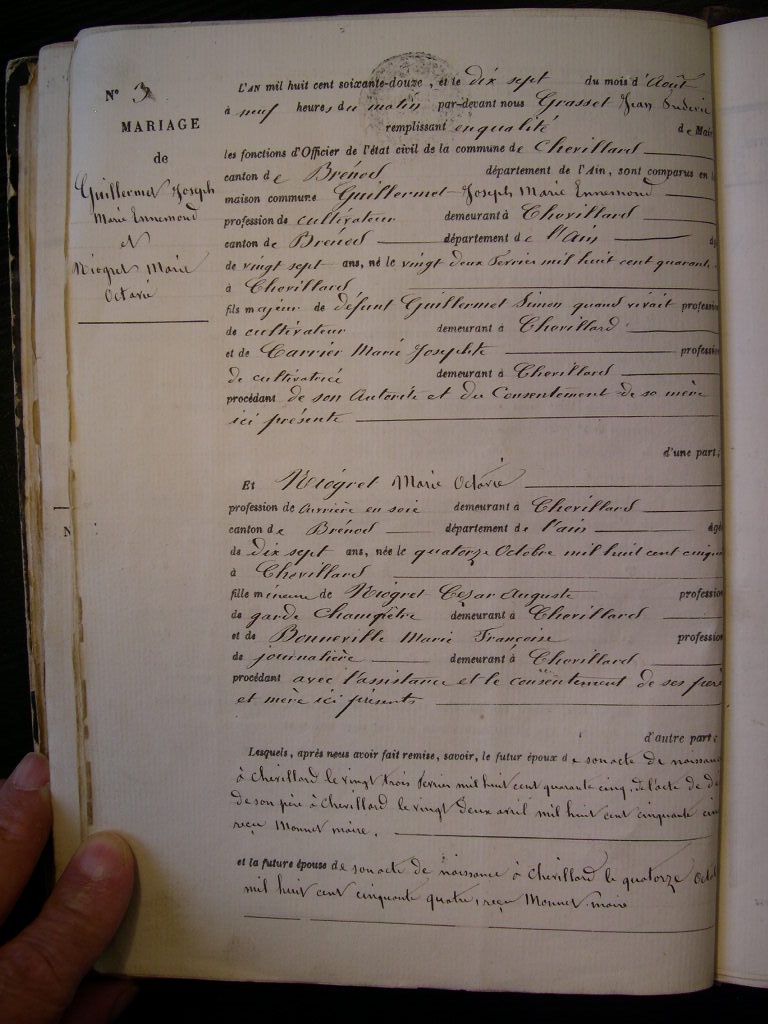 N° 3
MARIAGE
de
Guillermet Joseph
Marie Ennemond
et
Niogret Marie
Octavie
L'AN mil huit cent soixante-douze, et le dix sept du mois d'Août
à neuf heures du matin par-devant nous Grasset Jean
remplissant en qualité de Mair
les fonctions d'Officier de l'état civil de la commune de Chevillard
canton de Brénod département de l'Ain, sont comparus en l
maison commune Guillermet Joseph Marie Ennemond
profession de cultivateur demeurant à Chevillard
canton de Brénod département de l'Ain âg
de vingt sept ans, né le vingt deux Fevrier mil huit cent quarante
à Chevillard
fils majeur de défunt Guillermet Simon quand vivait profession
de cultivateur demeurant à Chevillard
et de Carrier Marie Josephte profession
de cultivatrice demeurant à Chevillard
procédant de son Autorité et du Consentement de sa mère
ici présente
d'une part;
Et Niogret Marie Octavie
profession de ouvrière en soie demeurant à Chevillard
canton de Brénod département de l'ain âgé
de dix sept ans, née le quatorze Octobre mil huit cent cinqu
à Chevillard
fille mineure de Niogret César Auguste profession
de garde Champêtre demeurant à Chevillard
et de Bonneville Marie Françoise profession
de journalière demeurant à Chevillard
procédant avec l'assistance et le consentement de ses père
et mère ici présents
d'autre part;
Lesquels, après nous avoir fait remise, savoir, le futur époux de son acte de naissance
à Chevillard le vingt trois fevrier mil huit cent quarante cinq, de l'acte de dé
de son père à Chevillard le vingt deux avril mil huit cent cinquante cin
reçu Monnet maire.
et la future épouse de son acte de naissance à Chevillard le quatorze Octob
mil huit cent cinquante quatre, reçu Monnet maire
N